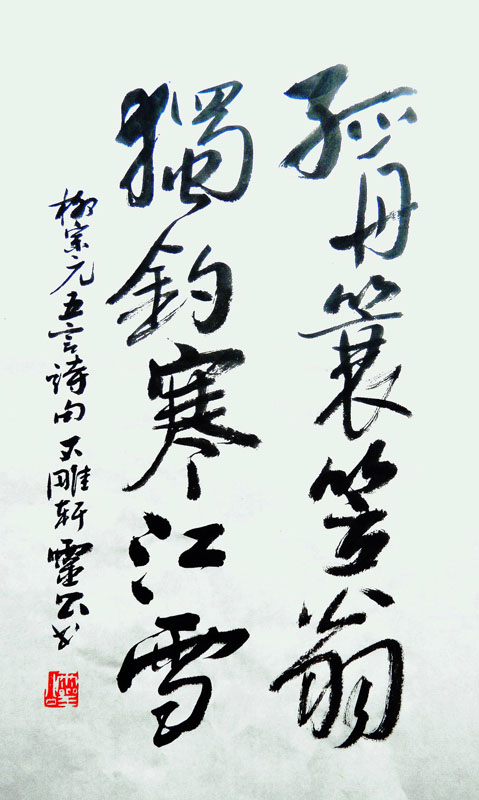 孤舟簑笠翁
獨釣寒江雪
柳宗元五言詩句文雕軒靈公书